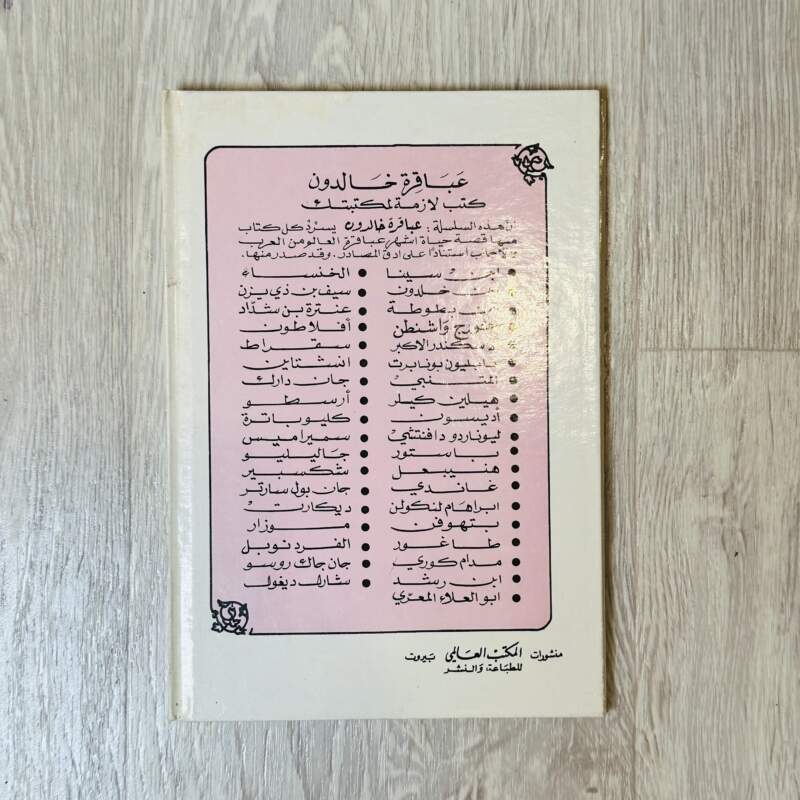 عَبَاقِرة خَالدون
كتب لازمة لمكتبتك
هذه السلسلة: عباقرة خالدون يسرد كل كتاب
منها قصة حياة أشهر عباقرة العالم من العرب
والأجانب استنادًا على ادق المصادر. وقد صدر منها.
• ابن سينا
• ابن خلدون
• ابن بطوطة
• جورج واشنطن
• الاسكندر الاكبر
• نابليون بونابرت
• المتنبي
• هيلين كيلر
• أديسون
• ليوناردو دافنتشي
• باستور
• هنيبعل
• غاندي
• ابراهام لنكولن
• بتهوفن
• طاغور
• مدام كوري
• ابن رشد
• ابو العلاء المعري
• الخنساء
• سيف بن ذي يزن
• عنترة بن شدّاد
• أفلاطون
• سقراط
• انشتاين
• جان دارك
• أرسطو
• كليوباترة
• سميراميس
• جاليليو
• شكسبير
• جان بول سارتر
• ديكارت
• موزار
• الفرد نوبل
• جان جاك روسو
• شارل ديغول
منشورات المكتب العالمي بيروت
للطباعة والنشر